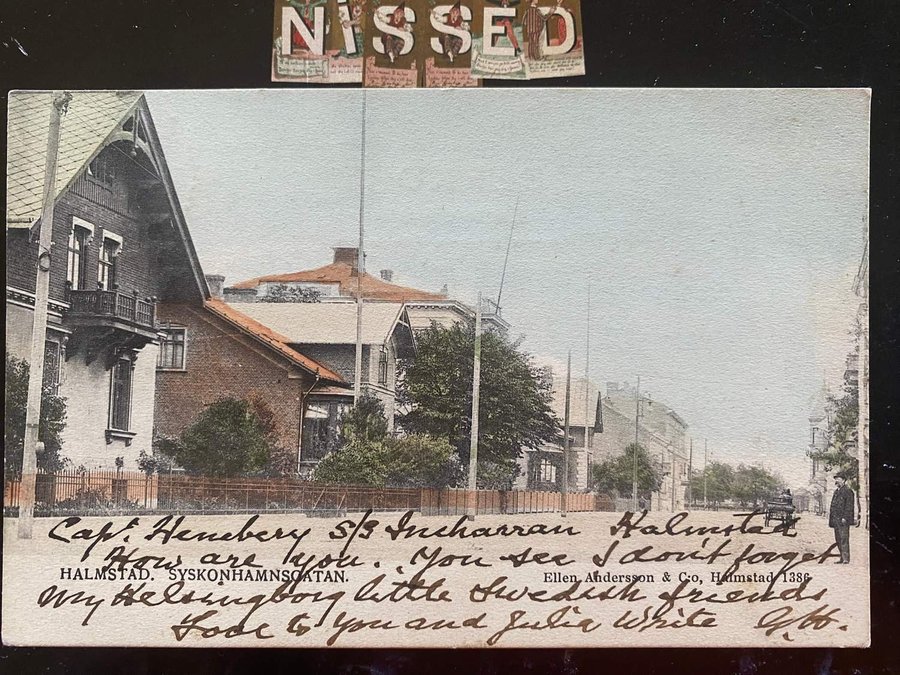 NiSSED
Capt. Henebery S/S Incharran Halmstad
How are you. You see I don't forget
HALMSTAD. SYSKONHAMNSGATAN.
Ellen Andersson & C:o, Halmstad 1386
My Helsingborg little Swedish friends
Love to you and Julia White G.H.